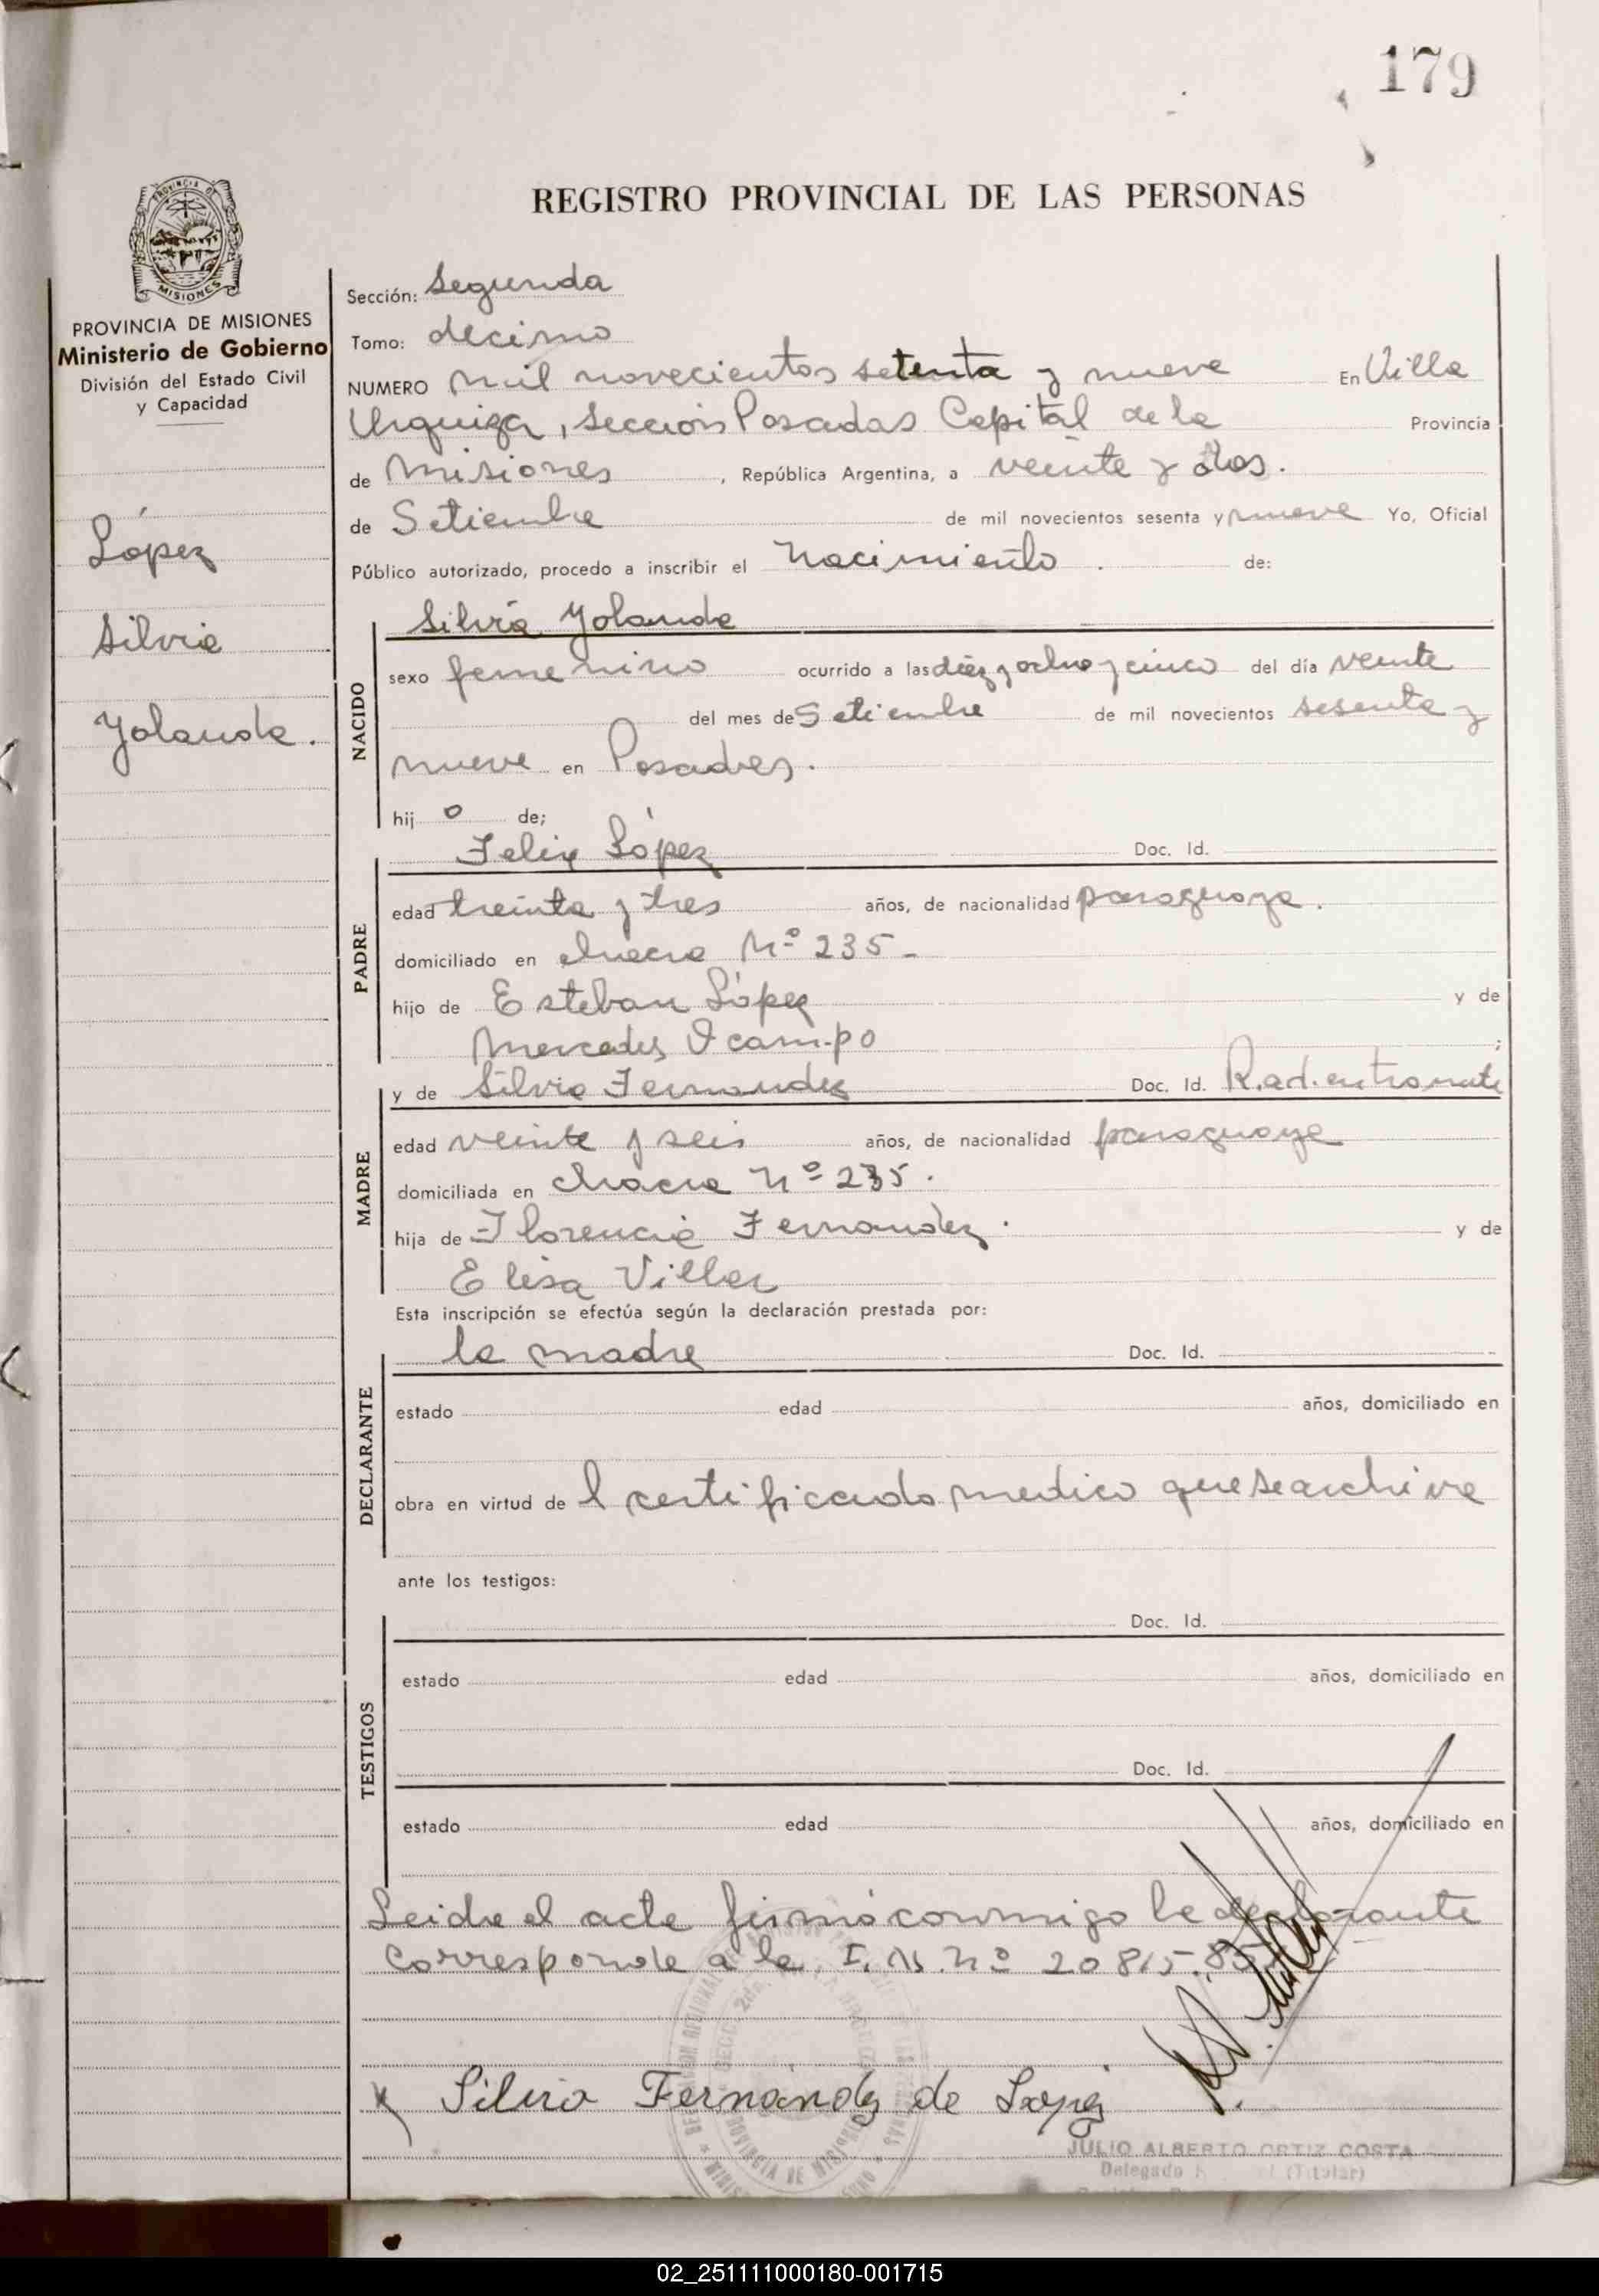 179
REGISTRO PROVINCIAL DE LAS PERSONAS
PROVINCIA DE
MISIONES
PROVINCIA DE MISIONES
Ministerio de Gobierno
División del Estado Civil
y Capacidad
López
Silvia
Yolanda.
Sección: Segunda
Tomo: decimo
NUMERO mil novecientos setenta y nueve En Villa
Urquiza, Sección Posadas Capital de la Provincia
de Misiones, República Argentina, a veinte y dos.
de Setiembre de mil novecientos sesenta y nueve Yo, Oficial
Público autorizado, procedo a inscribir el nacimiento. de:
Silvia Yolanda
NACIDO
sexo femenino ocurrido a las diez y ocho y cinco del día veinte
del mes de Setiembre de mil novecientos sesenta y
nueve en Posadas.
hij o de;
Felix López Doc. Id.
PADRE
edad treinta y tres años, de nacionalidad paraguaya.
domiciliado en chacra Nº 235-
hijo de Esteban López y de
Mercedes Ocampo;
y de Silvia Fernandez Doc. Id. R.ad.
MADRE
edad veinte y seis años, de nacionalidad paraguaya
domiciliada en chacra Nº 235.
hija de Florencia Fernandez. y de
Elisa Villar
Esta inscripción se efectúa según la declaración prestada por:
la madre Doc. Id.
DECLARANTE
estado edad años, domiciliado en
obra en virtud de l certificado medico que se archiva
ante los testigos:
Doc. Id.
TESTIGOS
estado edad años, domiciliado en
Doc. Id.
estado edad años, domiciliado en
Leida el acta firmó conmigo la declarante
Corresponde a la I. N. Nº 20815.85
Silvia Fernández de López
JULIO ALBERTO ORTIZ COSTA
Delegado (Titular)
02_251111000180-001715